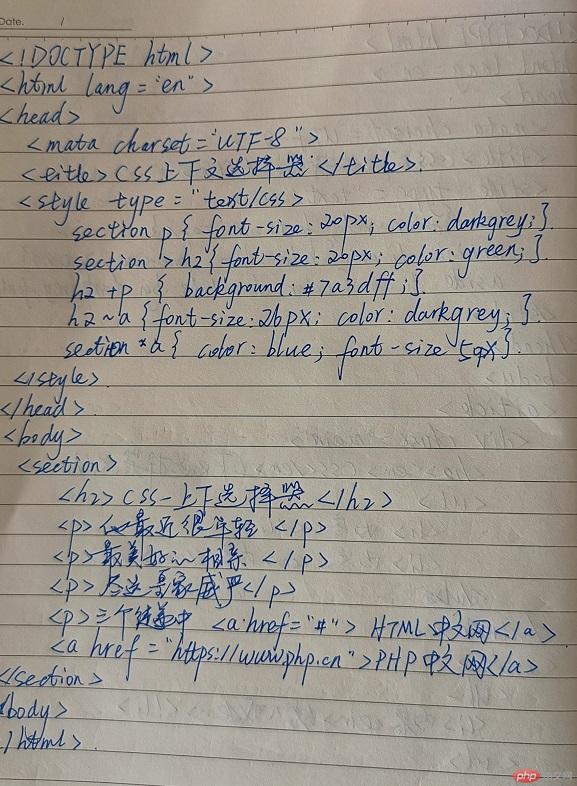 Date. /
<!DOCTYPE html>
<html lang="en">
<head>
<mata charset="UTF-8">
<title>CSS上下文选择器</title>
<style type="text/css>
section p{ font-size: 20px; color: darkgrey;}
section >h2{ font-size: 20px; color: green;}
h2 +p { background: #7a3dff;}
h2 ~a {font-size: 26px; color: darkgrey;}
section *a{ color: blue; font-size
</style>
</head>
<body>
<section>
<h2>CSS-上下选择器</h2>
<p>最近很年轻</p>
<p>最美好 相亲</p>
<p>尽这 家威严</p>
<p>三个 中 <a href="#">HTML中文网</a>
<a href="https://www.php.cn">PHP中文网</a>
</section>
body>
/html>
php